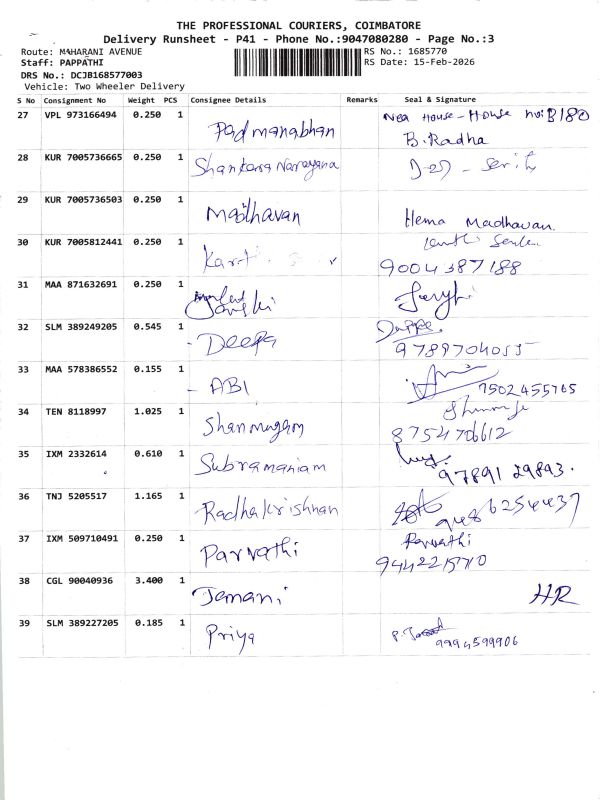 THE PROFESSIONAL COURIERS, COIMBATORE
Delivery Runsheet - P41 - Phone No.:9047080280 - Page No.:3
Route: MAHARANI AVENUE
RS No.: 1685770
Staff: PAPPATHI
RS Date: 15-Feb-2026
DRS No.: DCJB168577003
Vehicle: Two Wheeler Delivery
S No Consignment No Weight PCS Consignee Details Remarks Seal & Signature
27 VPL 973166494 0.250 1 Padmanabhan Nea House - House no: B180
B. Radha
28 KUR 7005736665 0.250 1 Shankara Narayana
29 KUR 7005736503 0.250 1 Madhavan Hema Madhavan.
30 KUR 7005812441 0.250 1
9004387188
31 MAA 871632691 0.250 1
32 SLM 389249205 0.545 1 - Deepa
33 MAA 578386552 0.155 1 - ABI
7502455765
34 TEN 8118997 1.025 1 Shanmugam
8754706612
35 IXM 2332614 0.610 1 Subramaniam
97891 29893.
36 TNJ 5205517 1.165 1 Radhakrishnan
9486254437
37 IXM 509710491 0.250 1 Parvathi Parvathi
9442215710
38 CGL 90040936 3.400 1 Jemani HR
39 SLM 389227205 0.185 1 Priya
9994599906